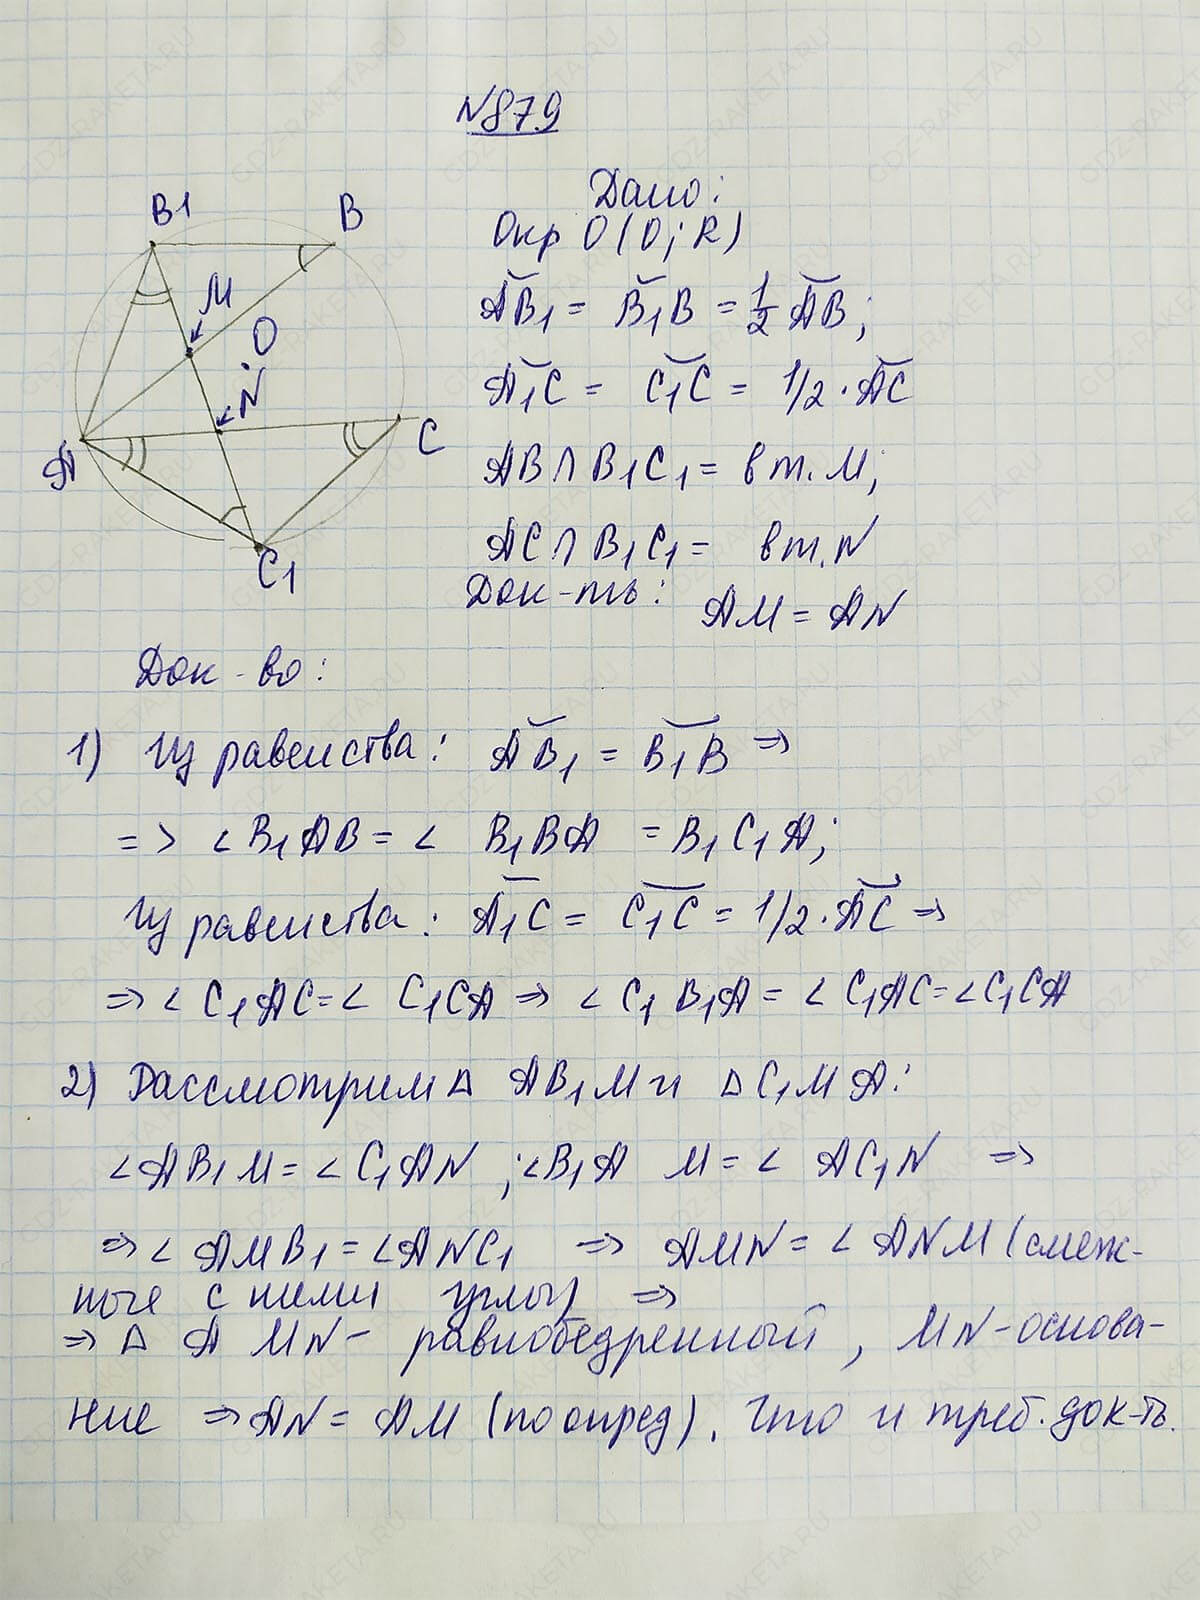 N879
B1
B
M
O
N
A
C
C1
Дано:
Окр O(O;R)
AB1 = B1B = 1/2 AB;
A1C = C1C = 1/2 · AC
AB∩B1C1 = в т. M;
AC∩B1C1 = в т. N
Док-ть: AM = AN
Док-во:
1) Из равенства: AB1 = B1B =>
=> ∠B1AB = ∠ B1BA = B1C1A;
Из равенства: A1C = C1C = 1/2 · AC =>
=> ∠C1AC = ∠ C1CA => ∠C1B1A = ∠C1AC = ∠C1CA
2) Рассмотрим △ AB1M и △C1MA:
∠AB1M = ∠C1AN ; ∠B1A M = ∠ AC1N =>
=> ∠ AMB1 = ∠ANC1 => AMN = ∠ANM (смеж-
ные с ними углы) =>
=> △ AMN - равнобедренный, MN-основа-
ние => AN = AM (по опред). Что и треб. док-ть.
GDZ-RAKETA.RU